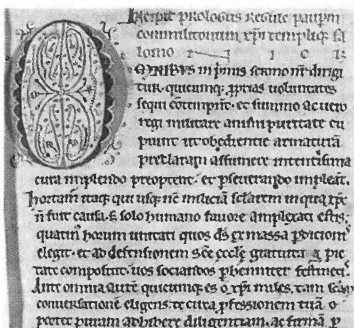 Incipit prologus regule paupum
commilitonum xpi templiq; sa
lomo n i c i
OMNIBUS in pimis sermo nr̄ dirigi
tur. quicumq; pprias uoluntates
sequi contempnt. et summo ac uero
regi militare animi puritate cu
piunt. ut obedientie armaturā
preclaram assumere intentissima
cura implendo preoptent. et pseuerando impleāt.
Hortamur itaq; qui usq; nc̄ miliciā sclarem in qua xpc̄
n̄ fuit causa. s; solo humano fauore amplexati estis;
quatin' horum unitati quos ds̄ ex massa pdicioni
elegit. et ad defensionem sc̄e eccl̄e gratuita pie
tate composuit. uos sociandos phenniter festineti.
Ante omnia autē quicumq; es o xpi miles. tam scām
conuersationē eligens. te circa pfessionem tuā o
portet puram adhibere diligentiam. ac firmā p